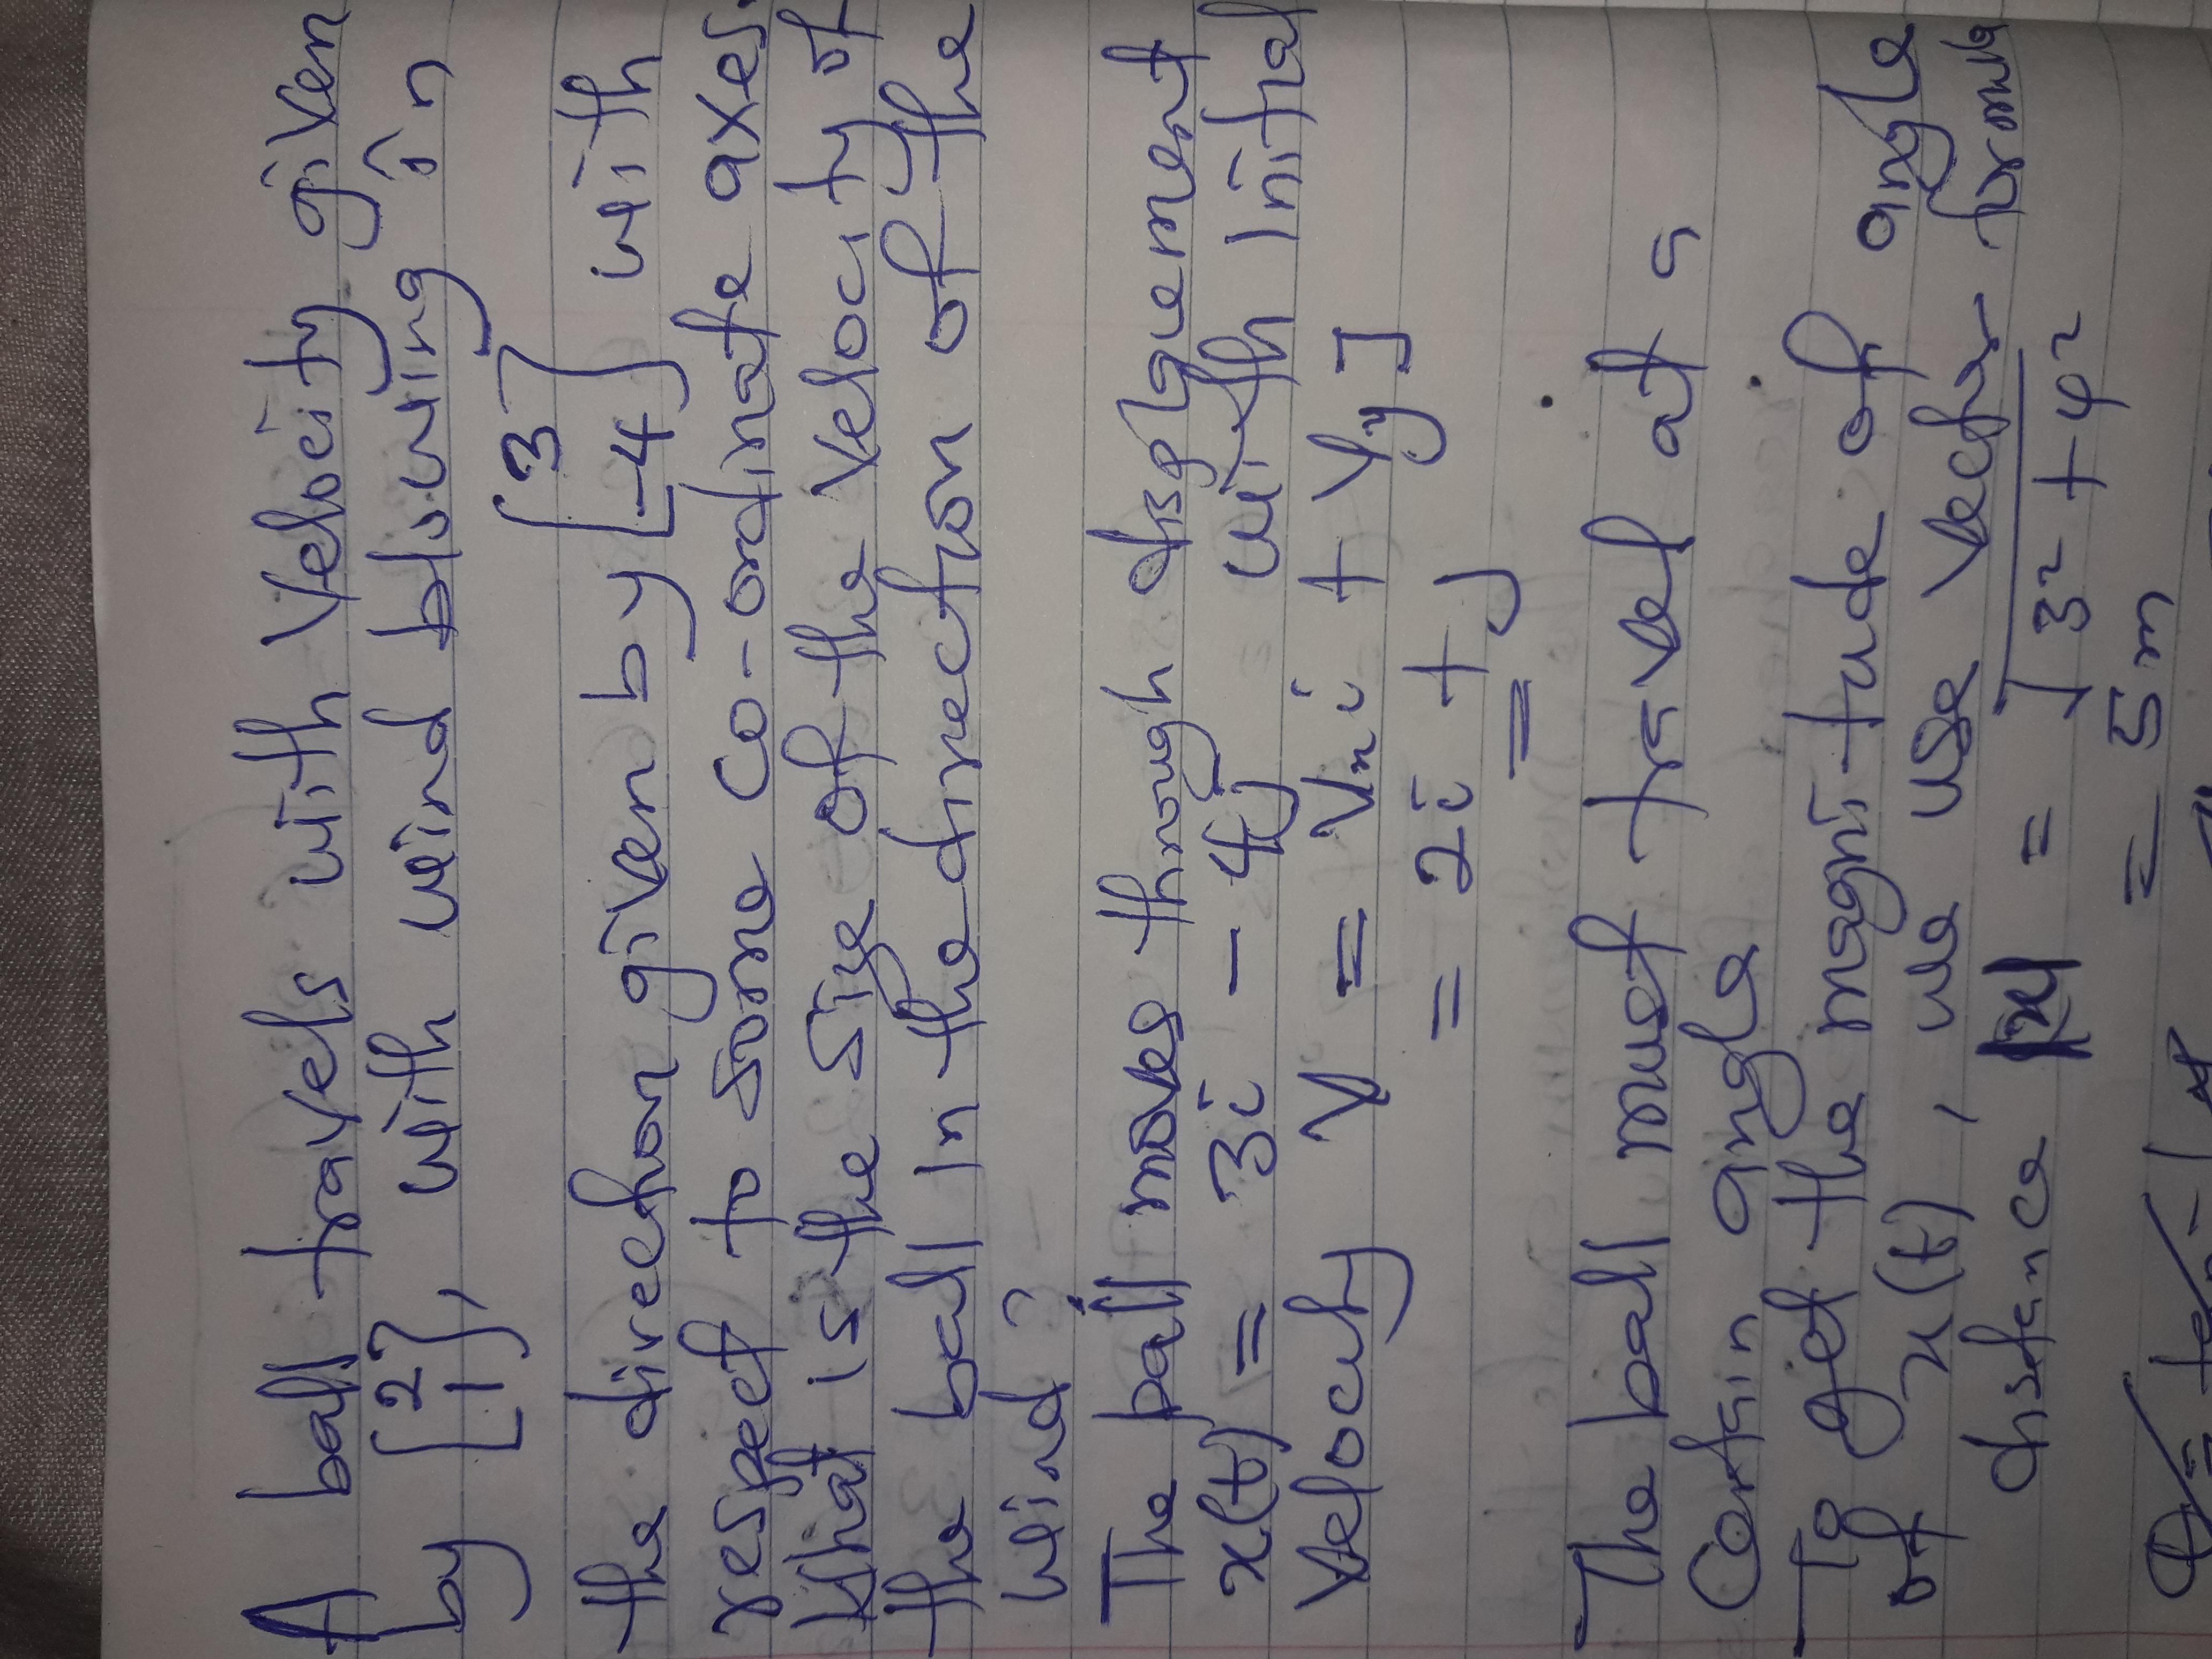 A ball travels with Velocity given
by [2 1], with wind blowing in
the direction given by [3 -4] with
respect to some co-ordinate axes.
What is the size of the Velocity of
the ball in the direction of the
wind?
The ball moves through displacement
x(t) = 3i - 4j with initial
Velocity V = Vxi + Vyj
= 2i + j
The ball must travel at a
Certain angle
To get the magnitude of angle
of x(t), we use Vector formula
distance |x| = √3² + 4²
= 5m